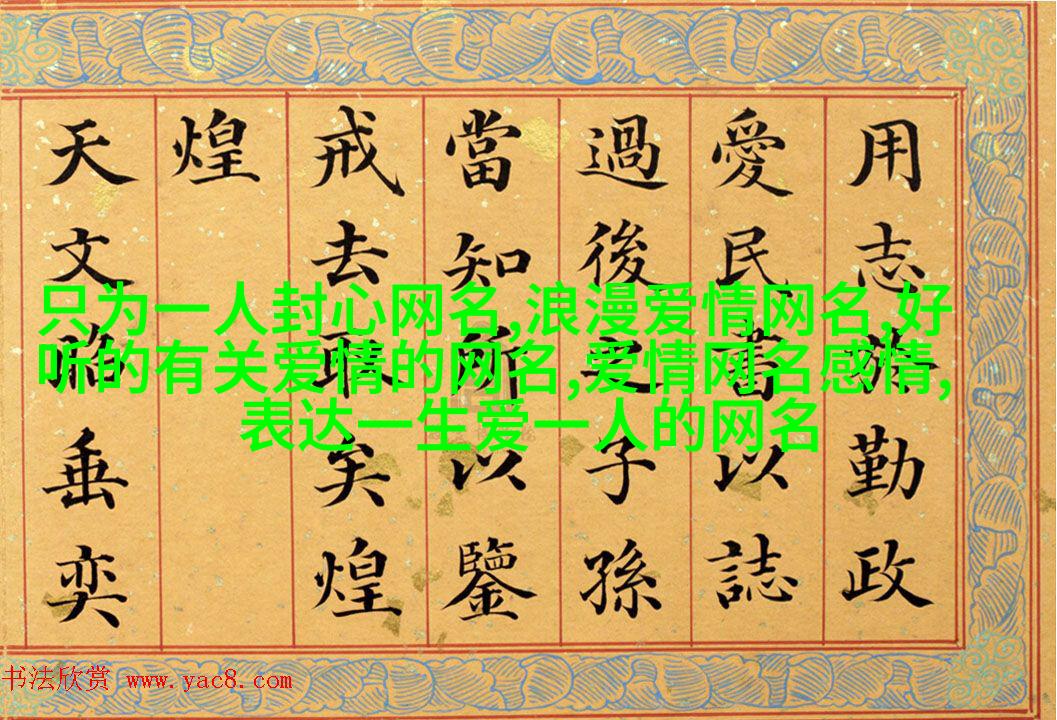 用志勤政
愛民書以誌
過後之子孫
當知所以鑒
戒去矣煌
煌
天文垂奕
只为一人封心网名,浪漫爱情网名,好
听的有关爱情的网名,爱情网名感情,
表达一生爱一人的网名
书法欣赏 www.yac8.com